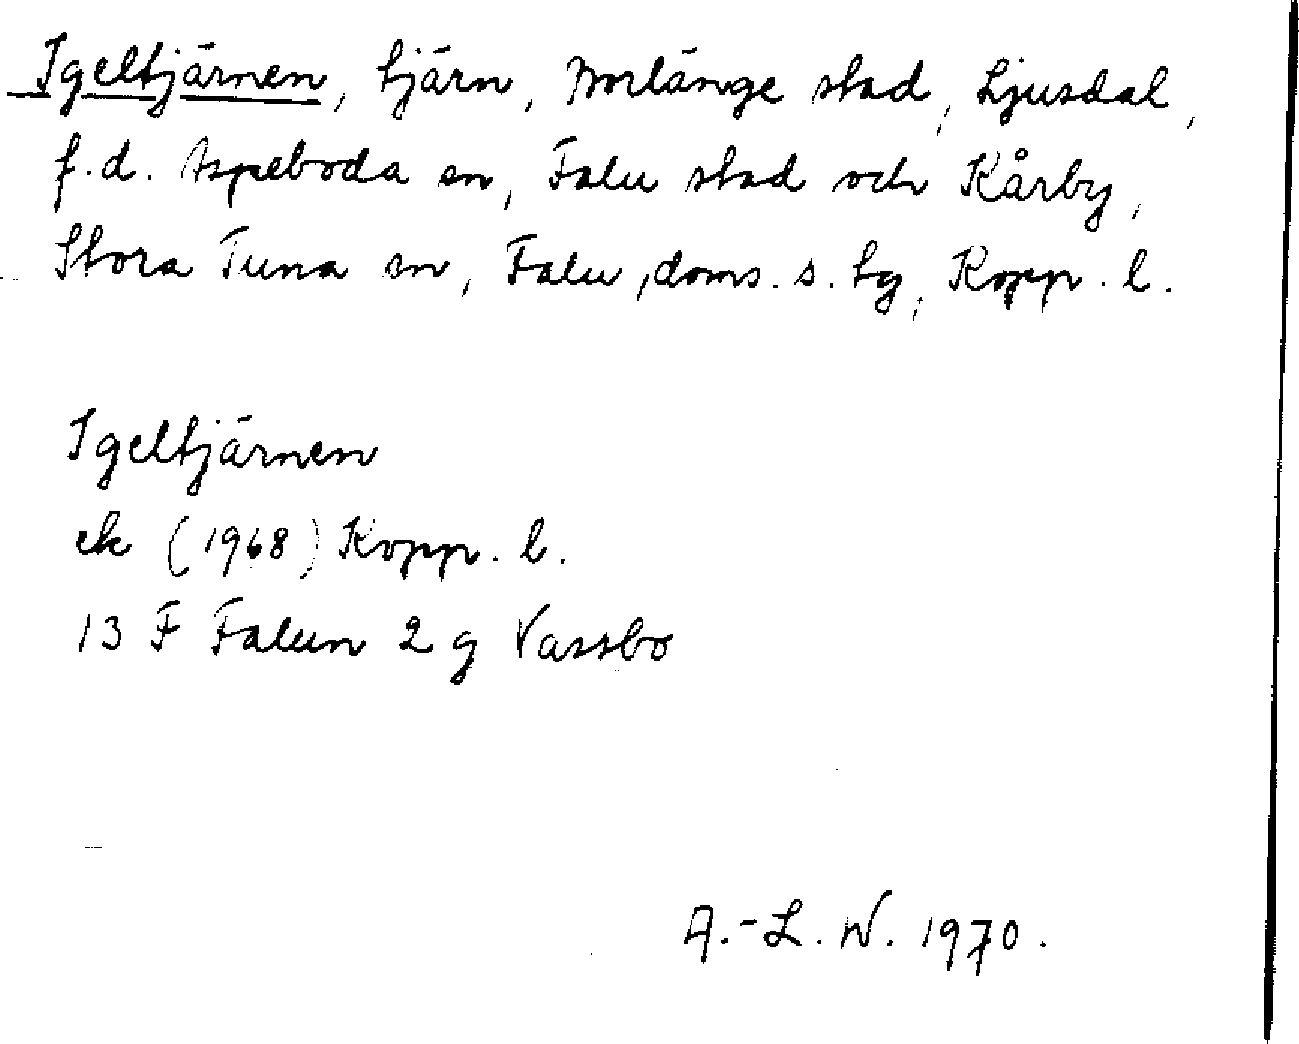 Igeltjärnen, tjärn, Borlänge stad, Ljusdal,
f.d. Aspeboda sn, Falu stad och Kårby,
Stora Tuna sn, Falu, doms. s. tg, Kopp. l.
Igeltjärnen
ek (1968) Kopp. l.
13 F Falun 2 g Vassbo
A.-L. W. 1970.